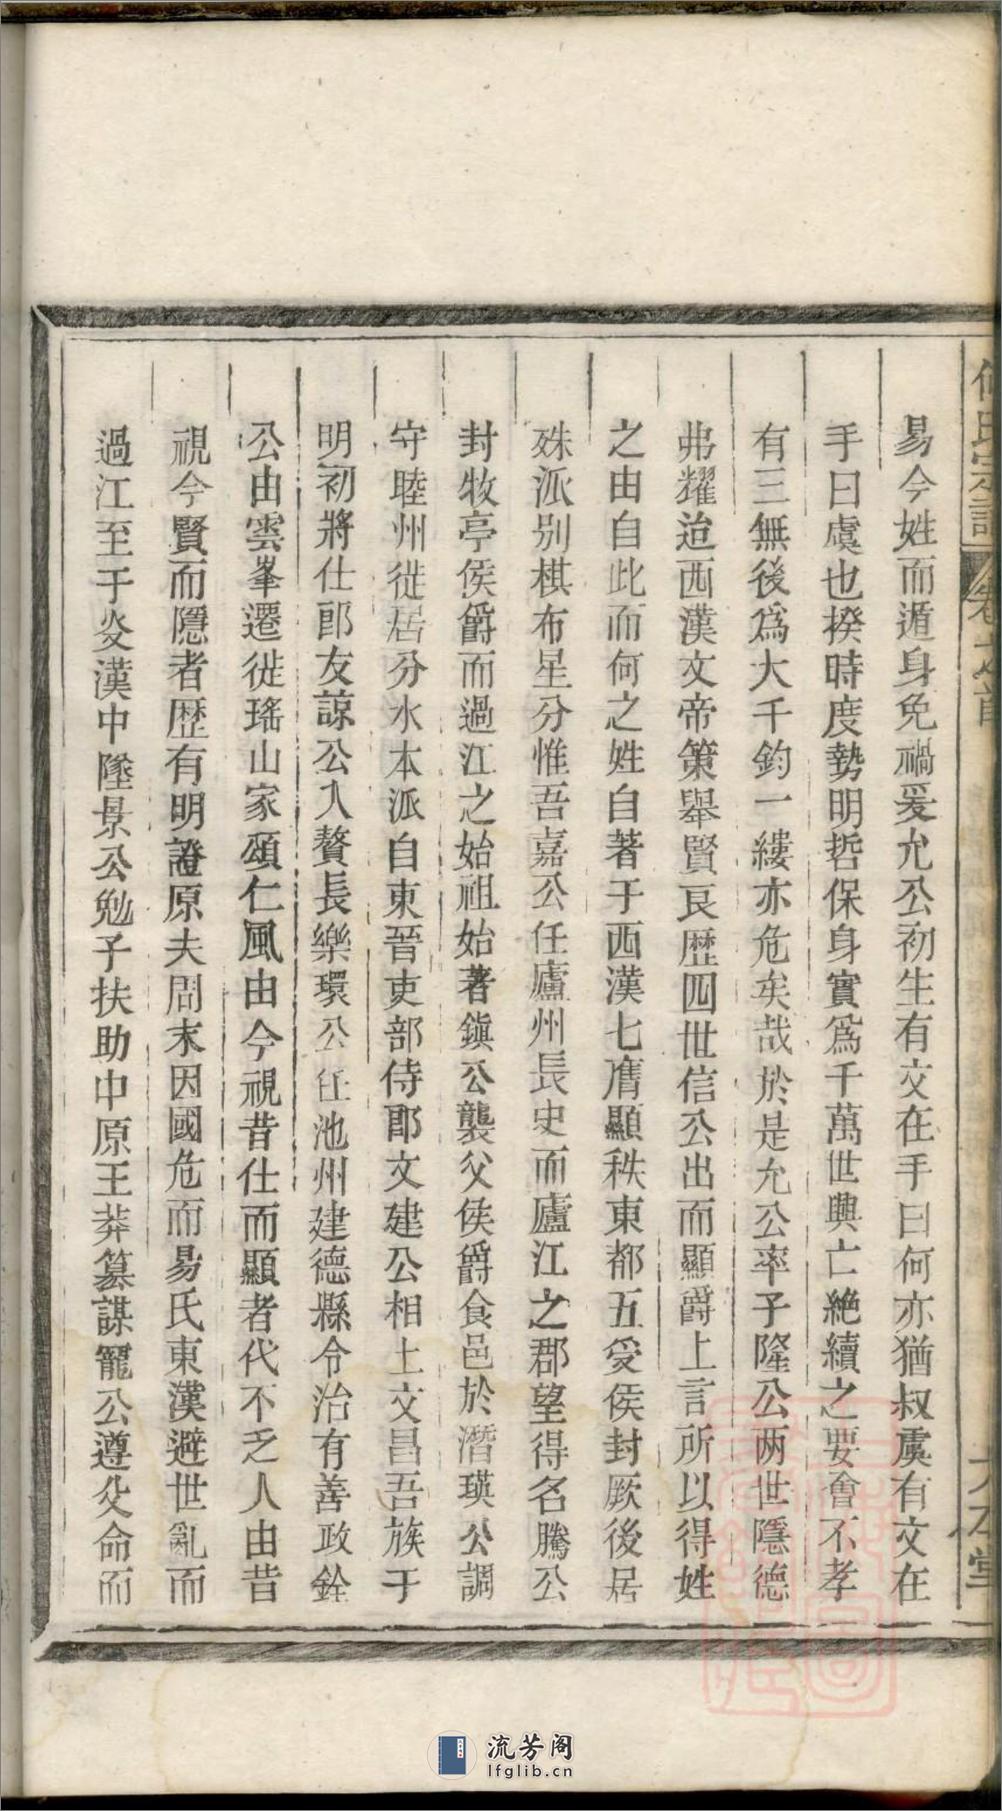 易今姓而遁身免禍爰允公初生有文在手曰何亦猶叔虞有文在
手曰虞也揆時度勢明哲保身實爲千萬世興亡絶續之要會不孝
有三無後爲大千鈞一縷亦危矣哉於是允公率子隆公两世隱德
弗耀迨西漢文帝策舉賢良歴四世信公出而顯爵上言所以得姓
之由自此而何之姓自著于西漢七膺顯秩東都五受侯封厥後居
殊派别棋布星分惟吾嘉公任廬州長史而廬江之郡望得名騰公
封牧亭侯爵而過江之始祖始著鎮公襲父侯爵食邑於潛瑛公調
守睦州徙居分水本派自東晉吏部侍郎文建公相土文昌吾族于
明初將仕郎友諒公入贅長樂環公任池州建德縣令治有善政銓
公由雲峯遷徙瑤山家頌仁風由今視昔仕而顯者代不乏人由昔
視今賢而隱者歴有明證原夫周末因國危而易氏東漢避世亂而
過江至于炎漢中墜景公勉子扶助中原王莽篡謀寵公遵父命而
何氏宗譜 卷之首 大本堂
流芳阁
lfglib.cn